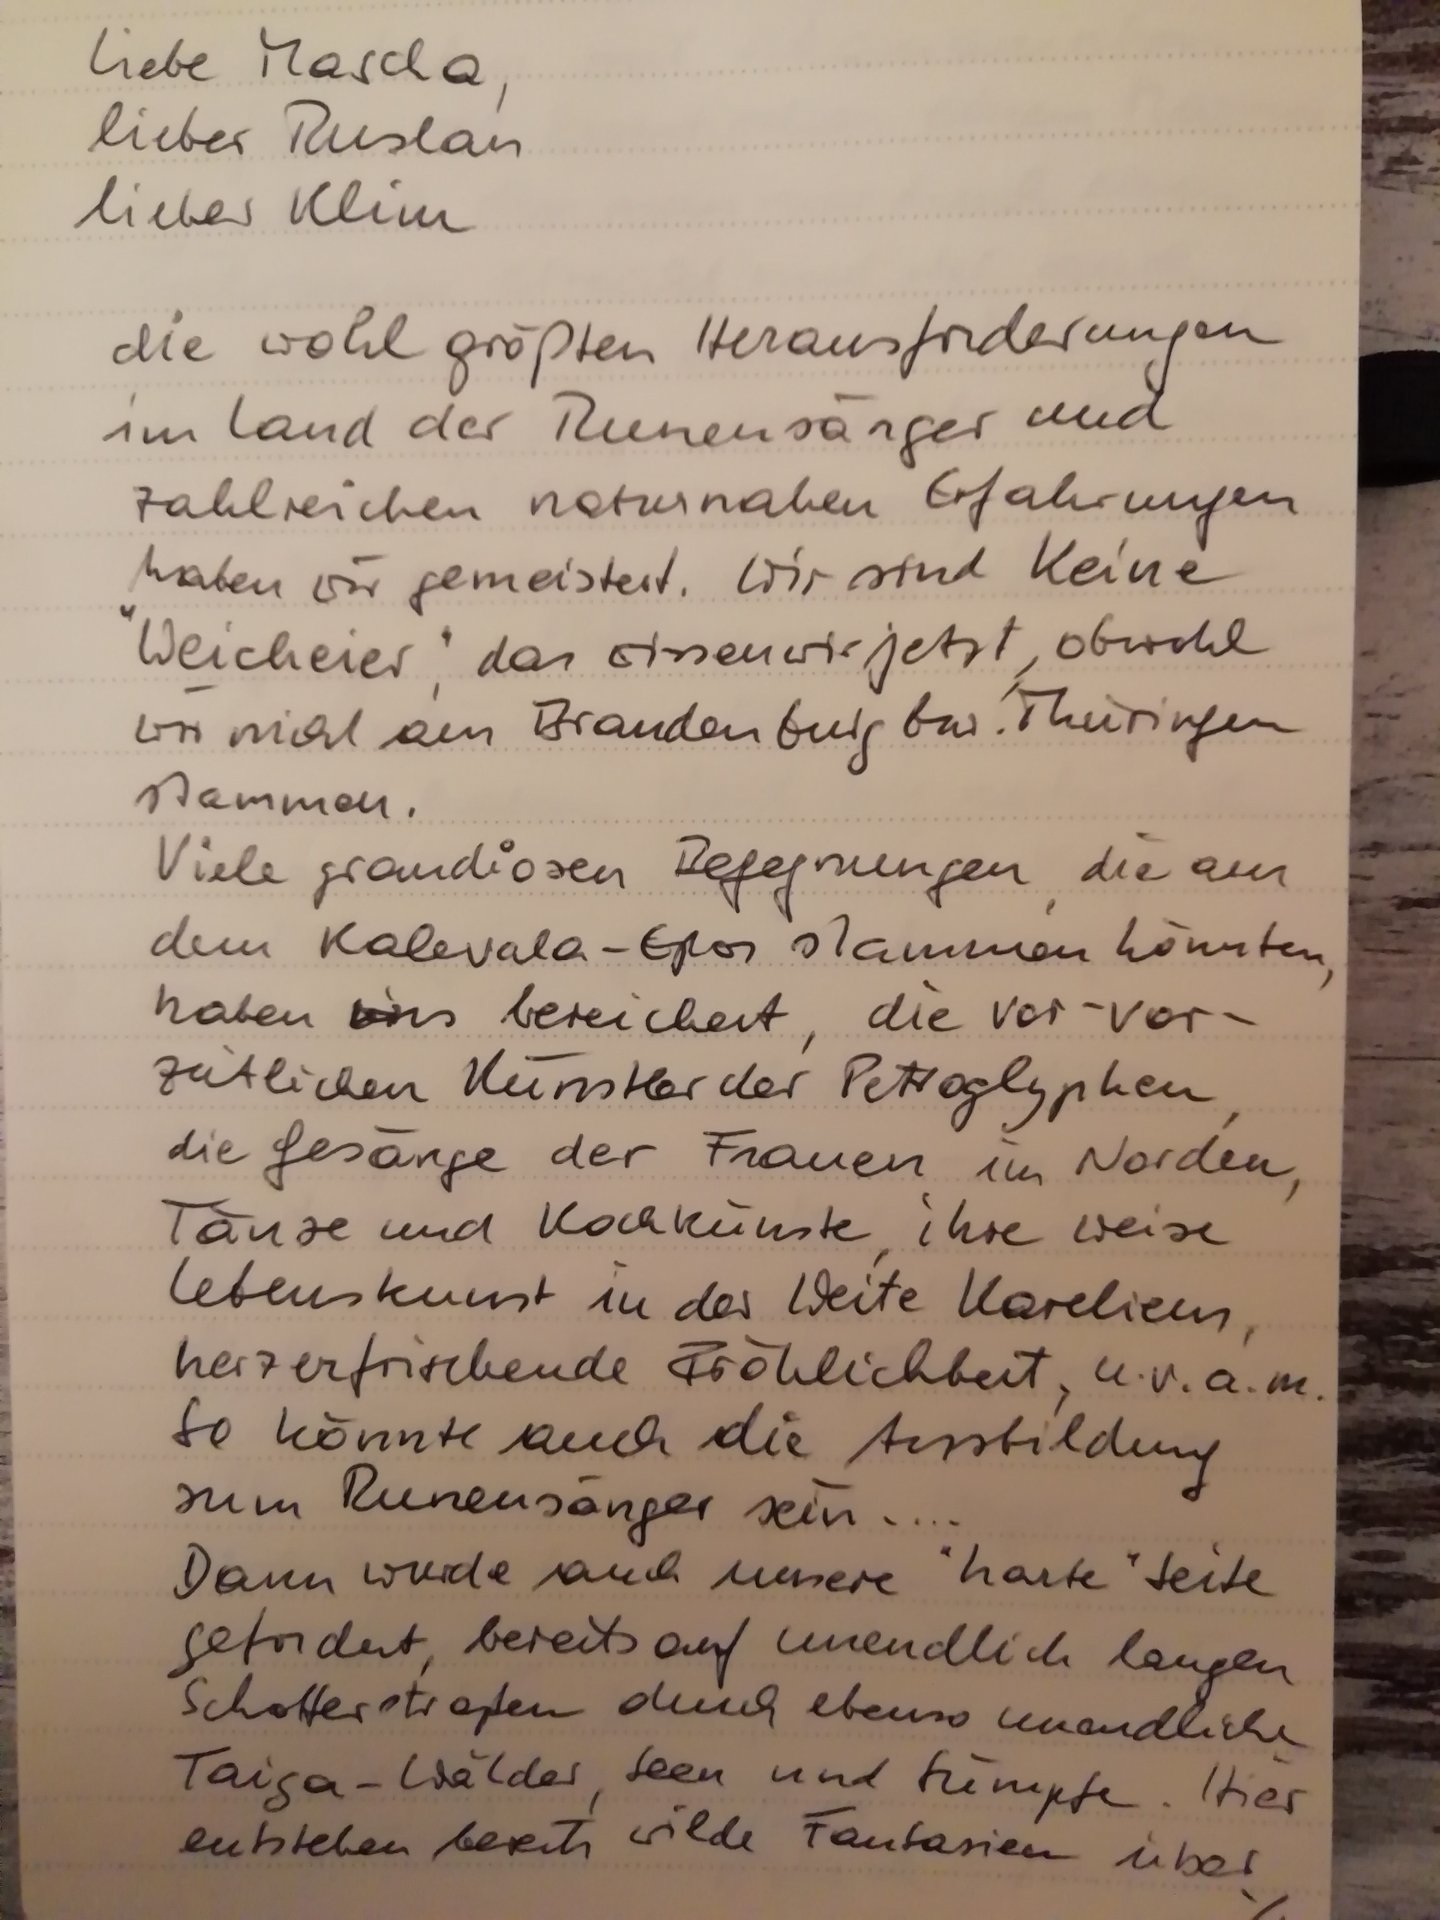 Liebe Mascha,
lieber Ruslan
lieber Klim
die wohl größten Herausforderungen
im Land der Runensänger und
zahlreichen naturnahen Erfahrungen
haben wir gemeistert. Wir sind keine
"Weicheier", das wissen wir jetzt, obwohl
wir nicht aus Brandenburg bzw. Thüringen
stammen.
Viele grandiosen Begegnungen, die aus
dem Kalevala-Epos stammen könnten,
haben uns bereichert, die vor-vor-
zeitlichen Künstler der Petroglyphen,
die Gesänge der Frauen im Norden,
Tänze und Kochkünste, ihre weise
Lebenskunst in der Weite Kareliens,
herzerfrischende Fröhlichkeit, u.v.a.m.
So könnte auch die Ausbildung
zum Runensänger sein....
Dann wurde auch unsere "harte" Seite
gefordert, bereits auf unendlich langen
Schotterstraßen durch ebenso unendliche
Taiga-Wälder, Seen und Sümpfe. Hier
entstehen bereits wilde Fantasien über